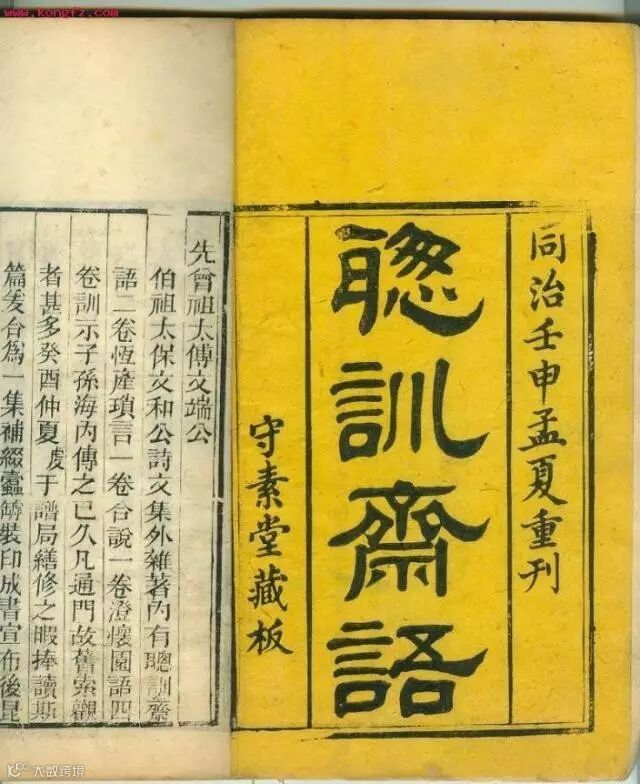 www.kongfz.com
同治壬申孟夏重刊
聰訓齋語
守素堂藏板
先曾祖太傅文端公
伯祖太保文和公詩文集外雜著內有聰訓齋
語二卷恆產瑣言一卷合說一卷澄懷園語四
卷訓示子孫海內傳之已久凡通門故舊索觀
者甚多癸酉仲夏虔于譜局繕修之暇捧讀斯
篇爰合為一集補綴蠹餘裝印成書宣布後昆
大数跨境